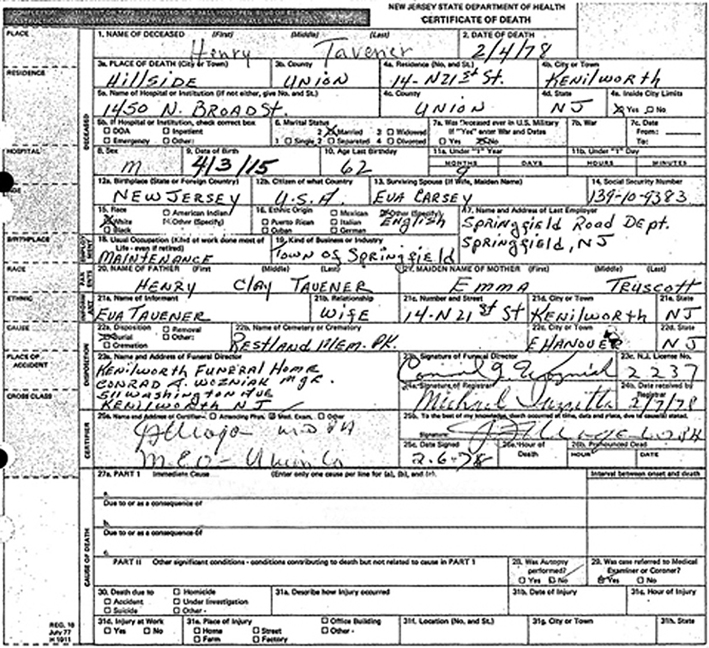 NEW JERSEY STATE DEPARTMENT OF HEALTH
CERTIFICATE OF DEATH
PLACE
1. NAME OF DECEASED (First) (Middle) (Last) 2. DATE OF DEATH
Henry Tavener 2/4/78
3a. PLACE OF DEATH (City or Town) 3b. County 4a. Residence (No. and St.) 4b. City or Town
RESIDENCE
HILLSIDE UNION 14-N 21st St. KENILWORTH
5a. Name of Hospital or Institution (If not either, give No. and St.) 4c. County 4d. State 4e. Inside City Limits
1450 N. BROAD St. UNION NJ Yes No
DECEASED
5b. If Hospital or Institution, check correct box 6. Marital Status 7a. Was Deceased ever in U.S. Military 7b. War 7c. Date
DOA Inpatient 2 Married 3 Widowed If "Yes" enter War and Dates From:
Emergency Other: 1 Single 2 Separated 4 Divorced Yes No To:
HOSPITAL
8. Sex 9. Date of Birth 10. Age Last Birthday 11a. Under "1" Year 11b. Under "1" Day
M 4/3/15 62 MONTHS DAYS HOURS MINUTES
9
12a. Birthplace (State or Foreign Country) 12b. Citizen of what Country 13. Surviving Spouse (If Wife, Maiden Name) 14. Social Security Number
NEW JERSEY U.S.A. EVA CARSEY 139-10-9383
15. Race American Indian 16. Ethnic Origin Mexican Other (Specify) 17. Name and Address of Last Employer
White Other (Specify) Puerto Rican Italian English Springfield Road Dept.
Black Cuban German Springfield, NJ
BIRTHPLACE
18. Usual Occupation (Kind of work done most of Life - even if retired) 19. Kind of Business or Industry
MAINTENANCE TOWN OF Springfield
RACE
PARENTS
20. NAME OF FATHER (First) (Middle) (Last) 21. MAIDEN NAME OF MOTHER (First) (Middle) (Last)
HENRY CLAY TAVENER EMMA TRUSCOTT
ETHNIC
INFORMANT
21a. Name of Informant 21b. Relationship 21c. Number and Street 21d. City or Town 21e. State
EVA TAVENER WIFE 14-N 21st St KENILWORTH NJ
CAUSE
22a. Disposition Removal 22b. Name of Cemetery or Crematory 22c. City or Town 22d. State
Burial Other:
Cremation RESTLAND MEM. PK. E HANOVER NJ
PLACE OF ACCIDENT
DISPOSITION
23a. Name and Address of Funeral Director 23b. Signature of Funeral Director 23c. N.J. License No.
KENILWORTH FUNERAL HOME 2237
CONRAD A. WOZNIAK MGR. 24a. Signature of Registrar 24b. Date received by Registrar
511 WASHINGTON AVE Michael 2/7/78
KENILWORTH NJ
CROSS CLASS
CERTIFIER
25a. Name and Address of Certifier Attending Phys. Med. Exam. Other 25b. To the best of my knowledge, death occurred at time, date and place, due to cause(s) stated.
Signature:
25c. Date Signed 26a. Hour of Death 26b. Pronounced Dead
M.E.O - Union Co 2-6-78 HOUR DATE
CAUSE OF DEATH
27a. PART I Immediate Cause (Enter only one cause per line for (a), (b), and (c). Interval between onset and death
a.
Due to or as a consequence of
b.
Due to or as a consequence of
c.
PART II Other significant conditions - conditions contributing to death but not related to cause in PART 1 28. Was Autopsy performed? 29. Was case referred to Medical Examiner or Coroner?
Yes No Yes No
30. Death due to Homicide 31a. Describe how Injury occurred 31b. Date of Injury 31c. Hour of Injury
Accident Under Investigation
Suicide Other -
REG. 18
July 77
H 1911
31d. Injury at Work 31e. Place of Injury Office Building 31f. Location (No. and St.) 31g. City or Town 31h. State
Yes No Home Street Other -
Farm Factory